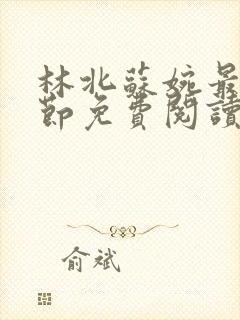 林北蘇婉最
節免費閱讀
俞斌